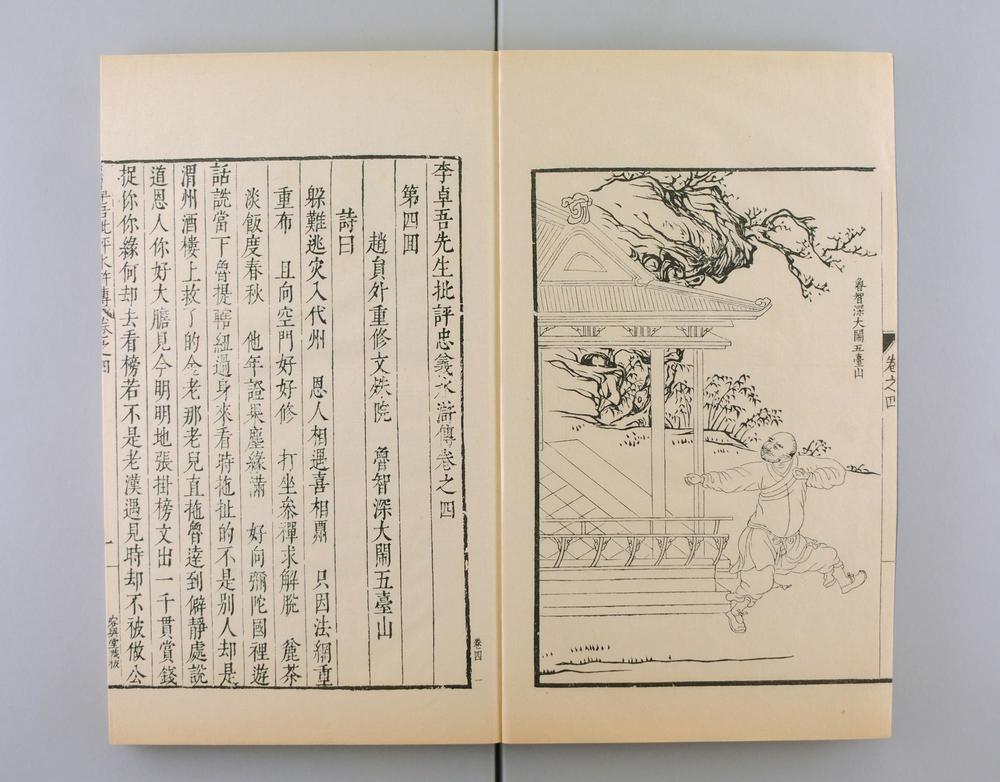 卷之四
魯智深大閙五臺山
李卓吾先生批評忠義水滸傳卷之四
第四回
趙員外重修文殊院　魯智深大閙五臺山
詩曰
躲難逃灾入代州　恩人相遇喜相酬　只因法網重
重布　且向空門好好修　打坐叅禪求解脫　麄茶
淡飯度春秋　他年證果塵緣滿　好向彌陀國裡遊
話說當下魯提轄紐過身來看時拖扯的不是别人却是
渭州酒樓上救了的金老那老兒直拖魯達到僻静處說
道恩人你好大膽見今明明地張掛榜文出一千貫賞錢
捉你你緣何却去看榜若不是老漢遇見時却不被做公
卷四　一
卓吾批評水滸傳　卷之四
一
容與堂藏板